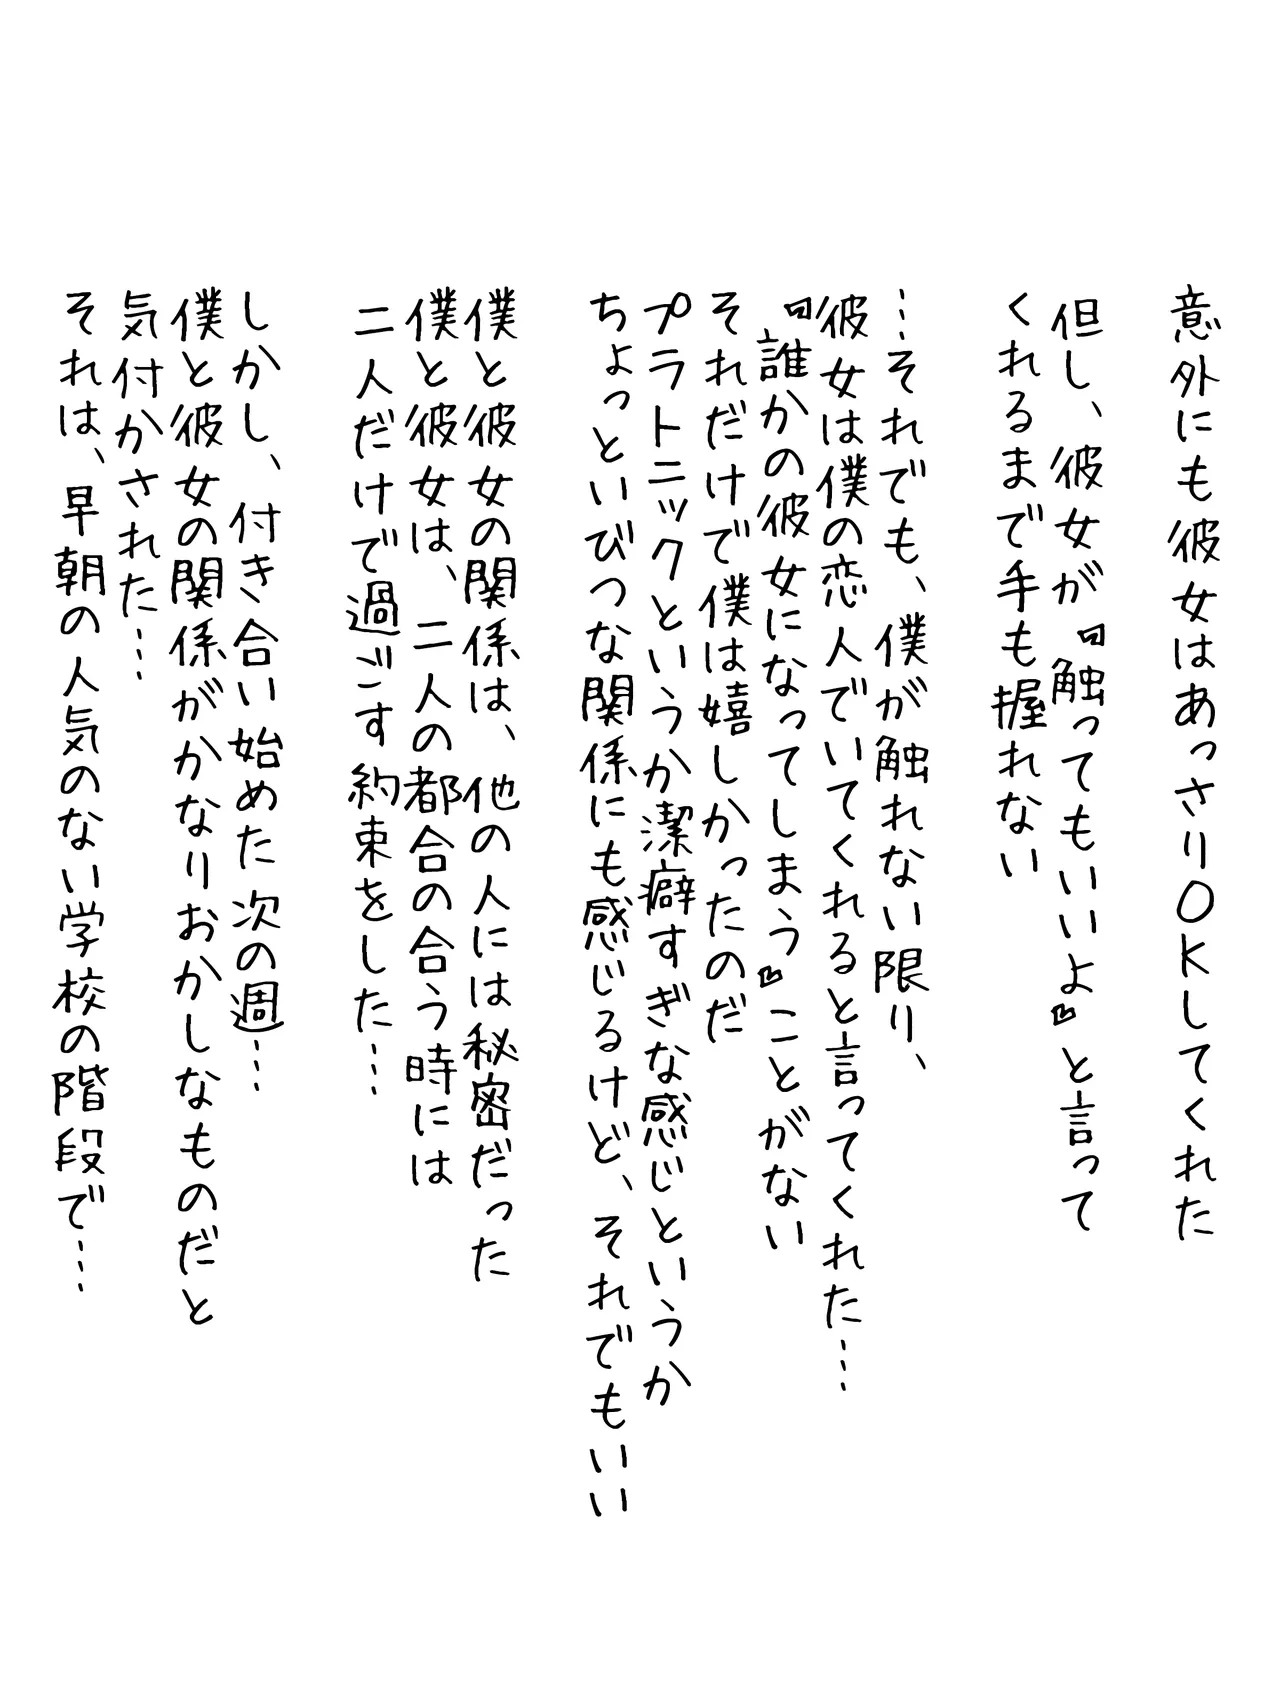 意外にも彼女はあっさりOKしてくれた
但し、彼女が『触ってもいいよ』と言って
くれるまで手も握れない
…それでも、僕が触れない限り、
彼女は僕の恋人でいてくれると言ってくれた…
『誰かの彼女になってしまう』ことがない
それだけで僕は嬉しかったのだ
プラトニックというか潔癖すぎな感じというか
ちょっといびつな関係にも感じるけど、それでもいい
僕と彼女の関係は、他の人には秘密だった
僕と彼女は、二人の都合の合う時には
二人だけで過ごす約束をした…
しかし、付き合い始めた次の週…
僕と彼女の関係がかなりおかしなものだと
気付かされた…
それは、早朝の人気のない学校の階段で…